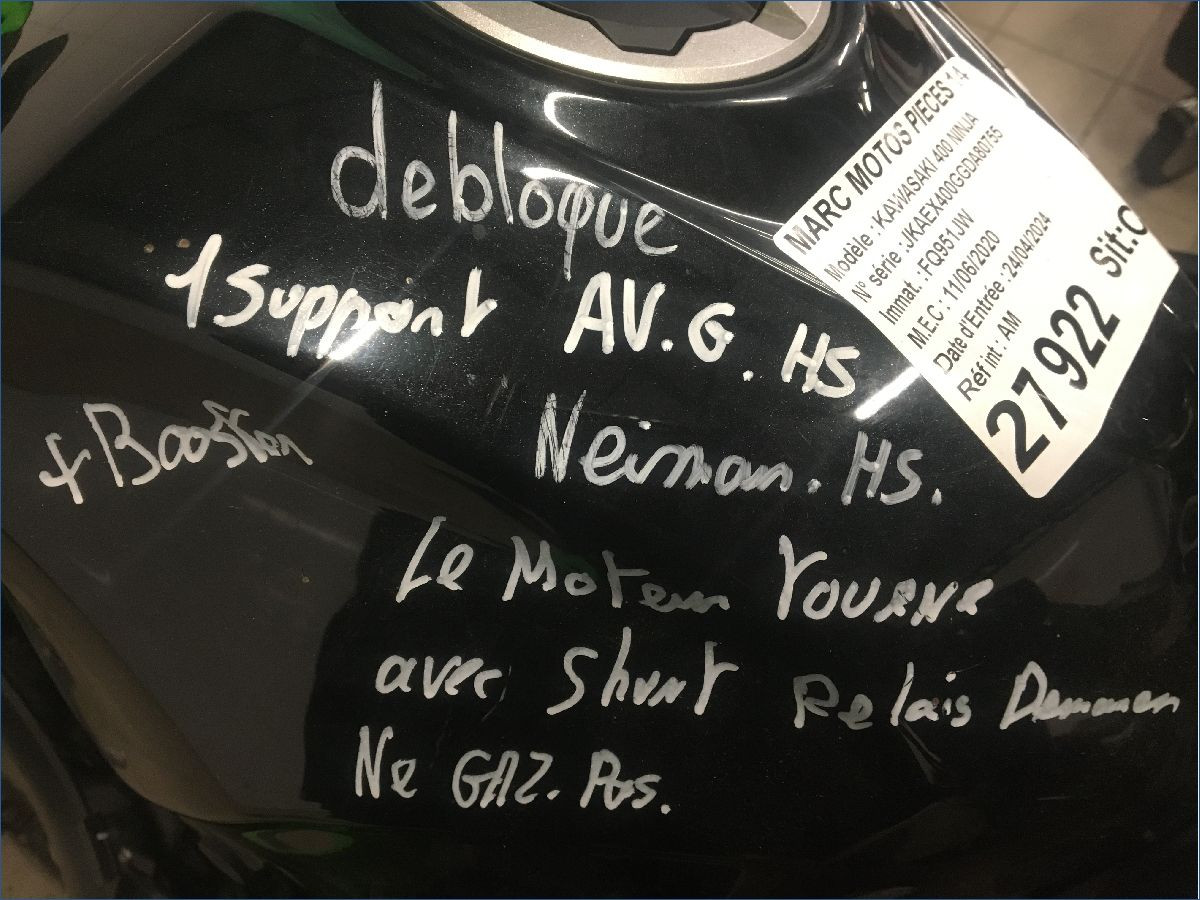 debloque
1 Support AV.G. HS
+ Booster
Neiman. HS.
Le Moteur Tourne
avec Shunt Relais Demarreur
Ne GAZ. Pas.
MARC MOTOS PIECES 14
Modèle : KAWASAKI 400 NINJA
N° série : JKAEX400GGDA80755
Immat. : FQ951JW
M.E.C : 11/06/2020
Date d'Entrée : 24/04/2024
Réf int : AM
27 922 Sit: